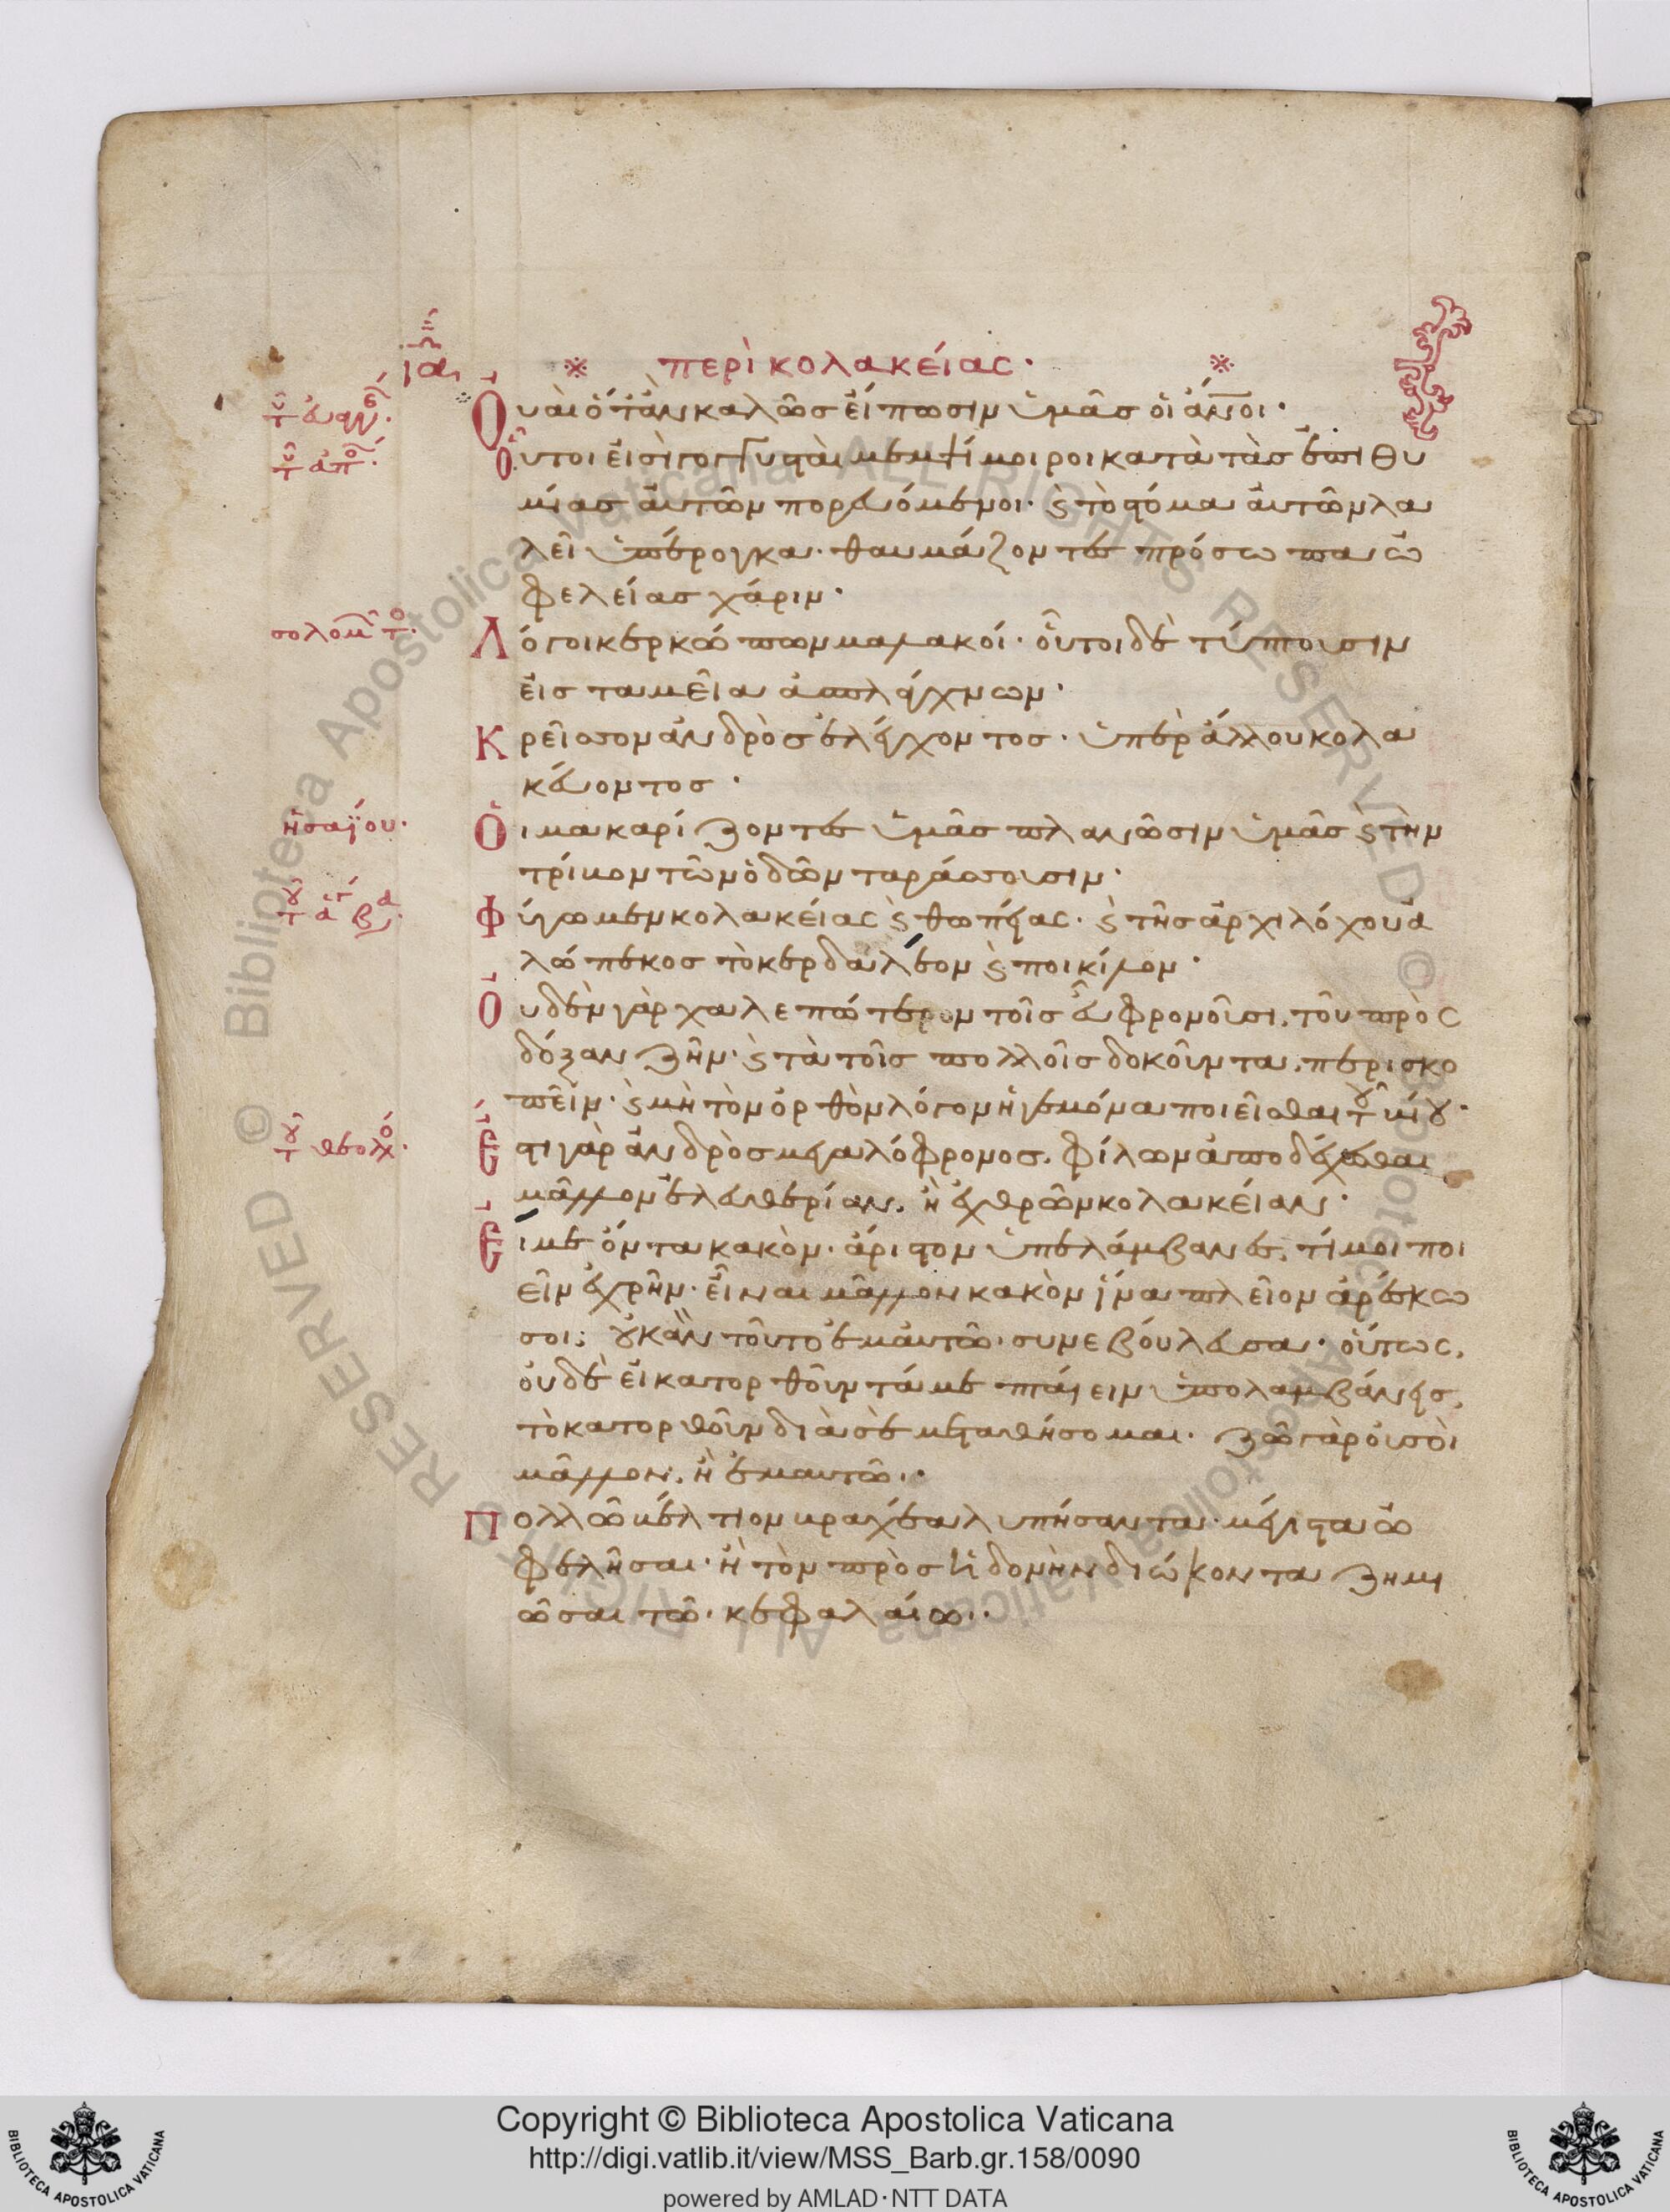 ια
περὶ κολακείας·
τοῦ εὐαγγε
Οὐαὶ ὅταν καλῶσ εἴπωσιν ὑμᾶσ οἱ ἄνοι·
τοῦ ἀπο
Οὗτοι εἰσὶ γογγυσταὶ μεμψίμοιροι κατὰ τὰσ ἐπιθυ
μίασ αὐτῶν πορευόμενοι· ϗ τὸ στόμα αὐτῶν λα
λεῖ ὑπέρογκα· θαυμάζοντεσ πρόσωπα ὠ
φελείασ χάριν·
σολομ τ
Λόγοι κερκώπων μαλακοί· οὗτοι δὲ τύπτουσιν
εἰσ ταμεῖα σπλάγχνων·
Κρεῖσσον ἀνδρὸσ ἐλέγχοντοσ· ὑπὲρ ἄλλου κολα
κεύοντοσ·
ἠσαΐου·
Οἱ μακαρίζοντεσ ὑμᾶσ πλανῶσιν ὑμᾶσ ϗ τὴν
τρίβον τῶν ὁδῶν ταράσσουσιν·
τοῦ ἁγ βα
Φύγωμεν κολακείας ϗ θωπείας· ϗ τῆσ ἀρχιλόχου ἀ
λώπεκοσ τὸ κερδαλέον ϗ ποικίλον·
Οὐδὲν γὰρ χαλεπώτερον τοῖσ εὖ φρονοῦσι, τοῦ πρὸς
δόξαν ζῆν· ϗ τὰ τοῖσ πολλοῖσ δοκοῦντα, περισκο
πεῖν· ϗ μὴ τὸν ὀρθὸν λόγον ἡγεμόνα ποιεῖσθαι τοῦ βίου·
τοῦ θεολο
Ἔστι γὰρ ἀνδρὸσ μεγαλόφρονοσ, φίλων ἀποδέχεσθαι
μᾶλλον ἐλευθερίαν, ἢ ἐχθρῶν κολακείαν·
Εἰ μὲ ὄντα κακὸν· ἄριστον ὑπελάμβανεσ, τί μοι ποι
εῖν ἐχρῆν· εἶναι μᾶλλον κακὸν ἵνα πλεῖον ἀρέσκω
σοι; οὐκ ἂν τοῦτο ἐμαυτῶ συνεβούλευσα· οὕτως,
οὐδὲ εἰ κατορθοῦντά με πταίειν ὑπολαμβάνεισ,
τὸ κατορθοῦν διὰ σὲ μεταθήσομαι· ζῶ γὰρ οὐ σοὶ
μᾶλλον, ἢ ἐμαυτῶ·
Πολλῶ βέλτιον βραχέα λυπήσαντα· μέγιστα ὠ
φελῆσαι· ἢ τὸν πρὸσ ἡδονὴν διώκοντα ζημι
ῶσαι τῶ κεφαλαίω·
Copyright © Biblioteca Apostolica Vaticana
http://digi.vatlib.it/view/MSS_Barb.gr.158/0090
powered by AMLAD·NTT DATA